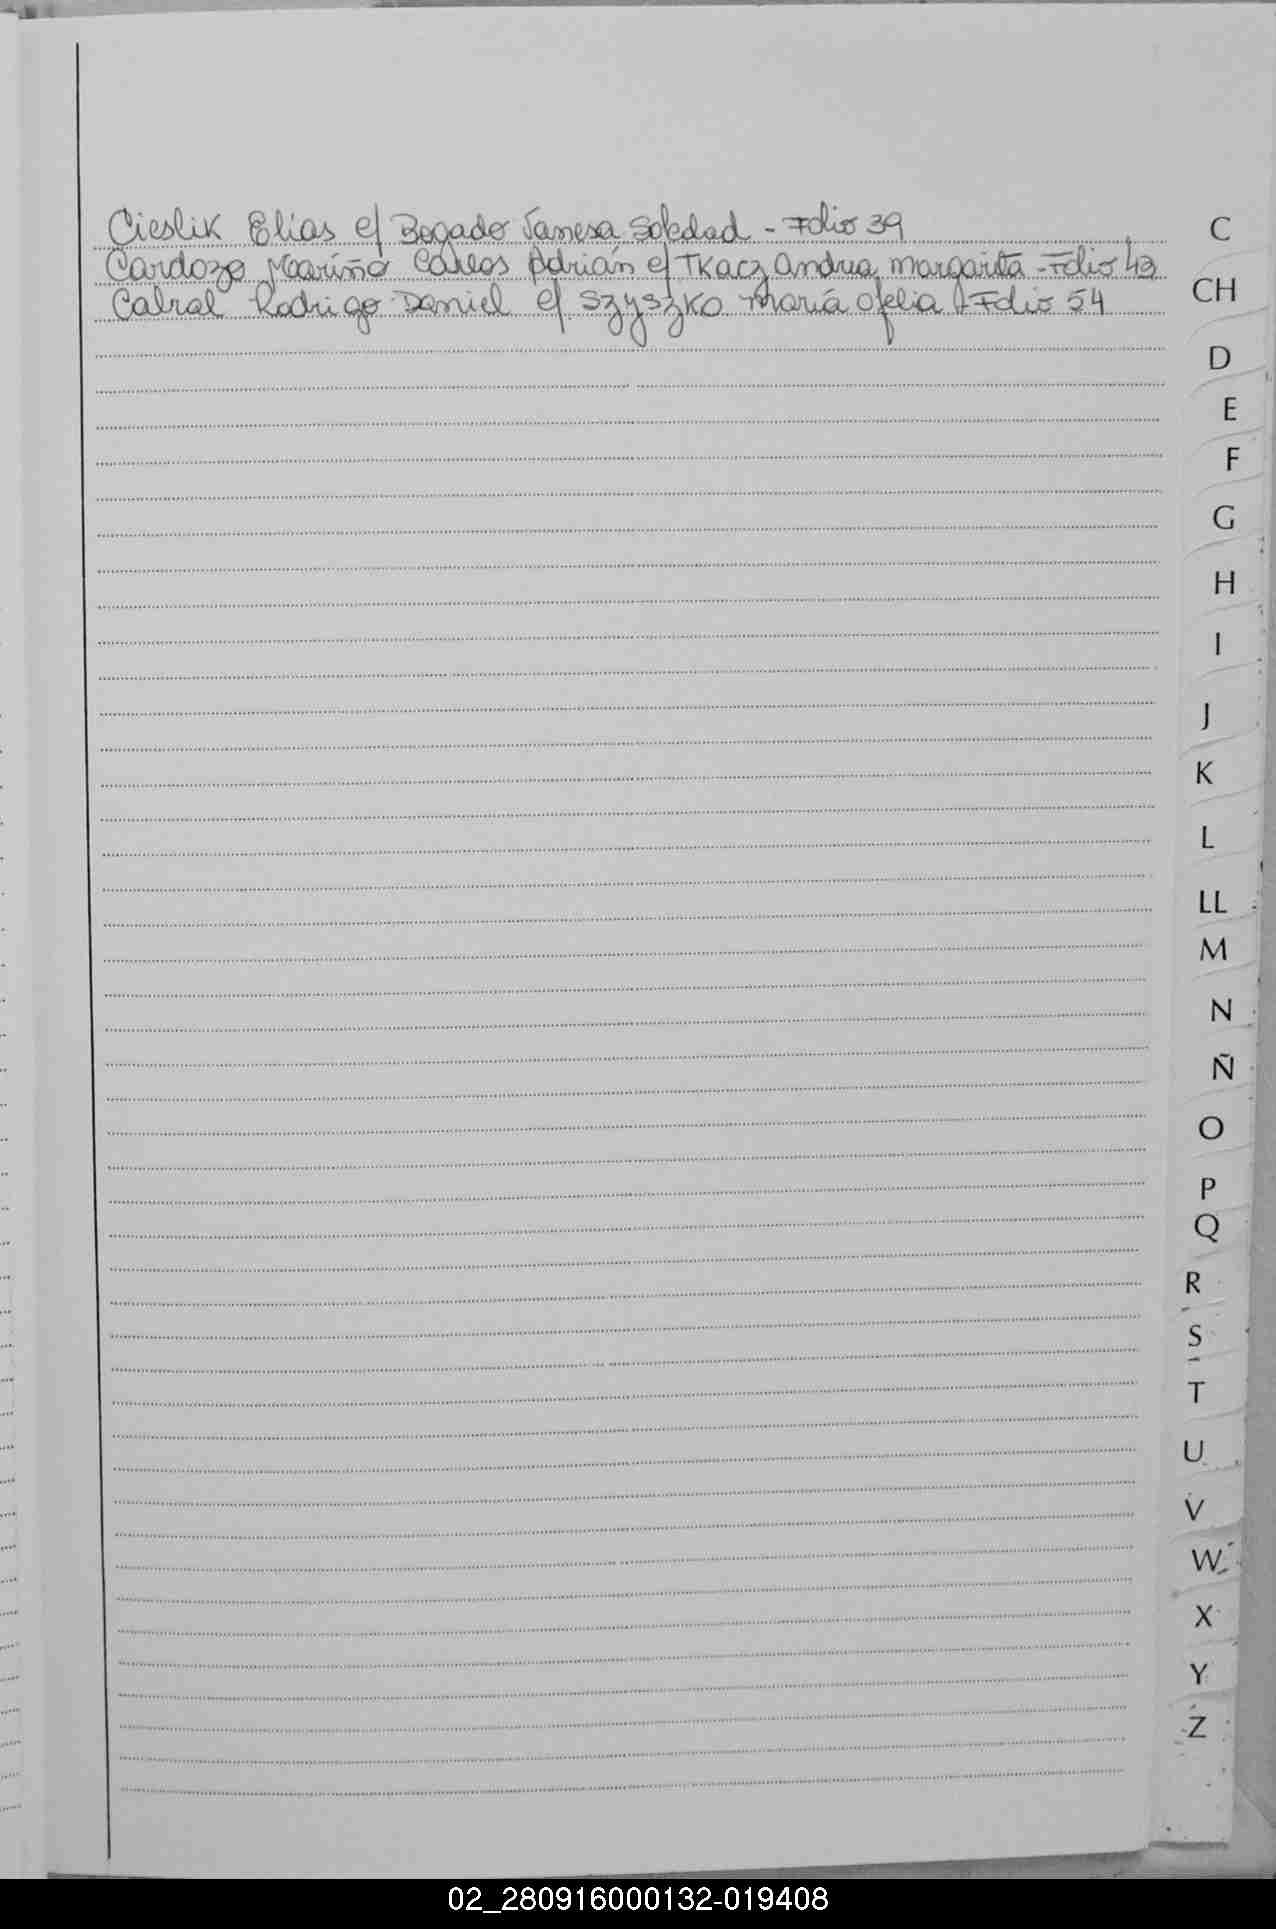 Cieslik Elías c/ Bogado Vanesa Soledad - Folio 39
Cardozo Mariño Carlos Adrián c/ Tkacz Andrea Margarita - Folio 43
Cabral Rodrigo Daniel c/ Szyszko María Ofelia - Folio 54
C
CH
D
E
F
G
H
I
J
K
L
LL
M
N
Ñ
O
P
Q
R
S
T
U
V
W
X
Y
Z
02_280916000132-019408